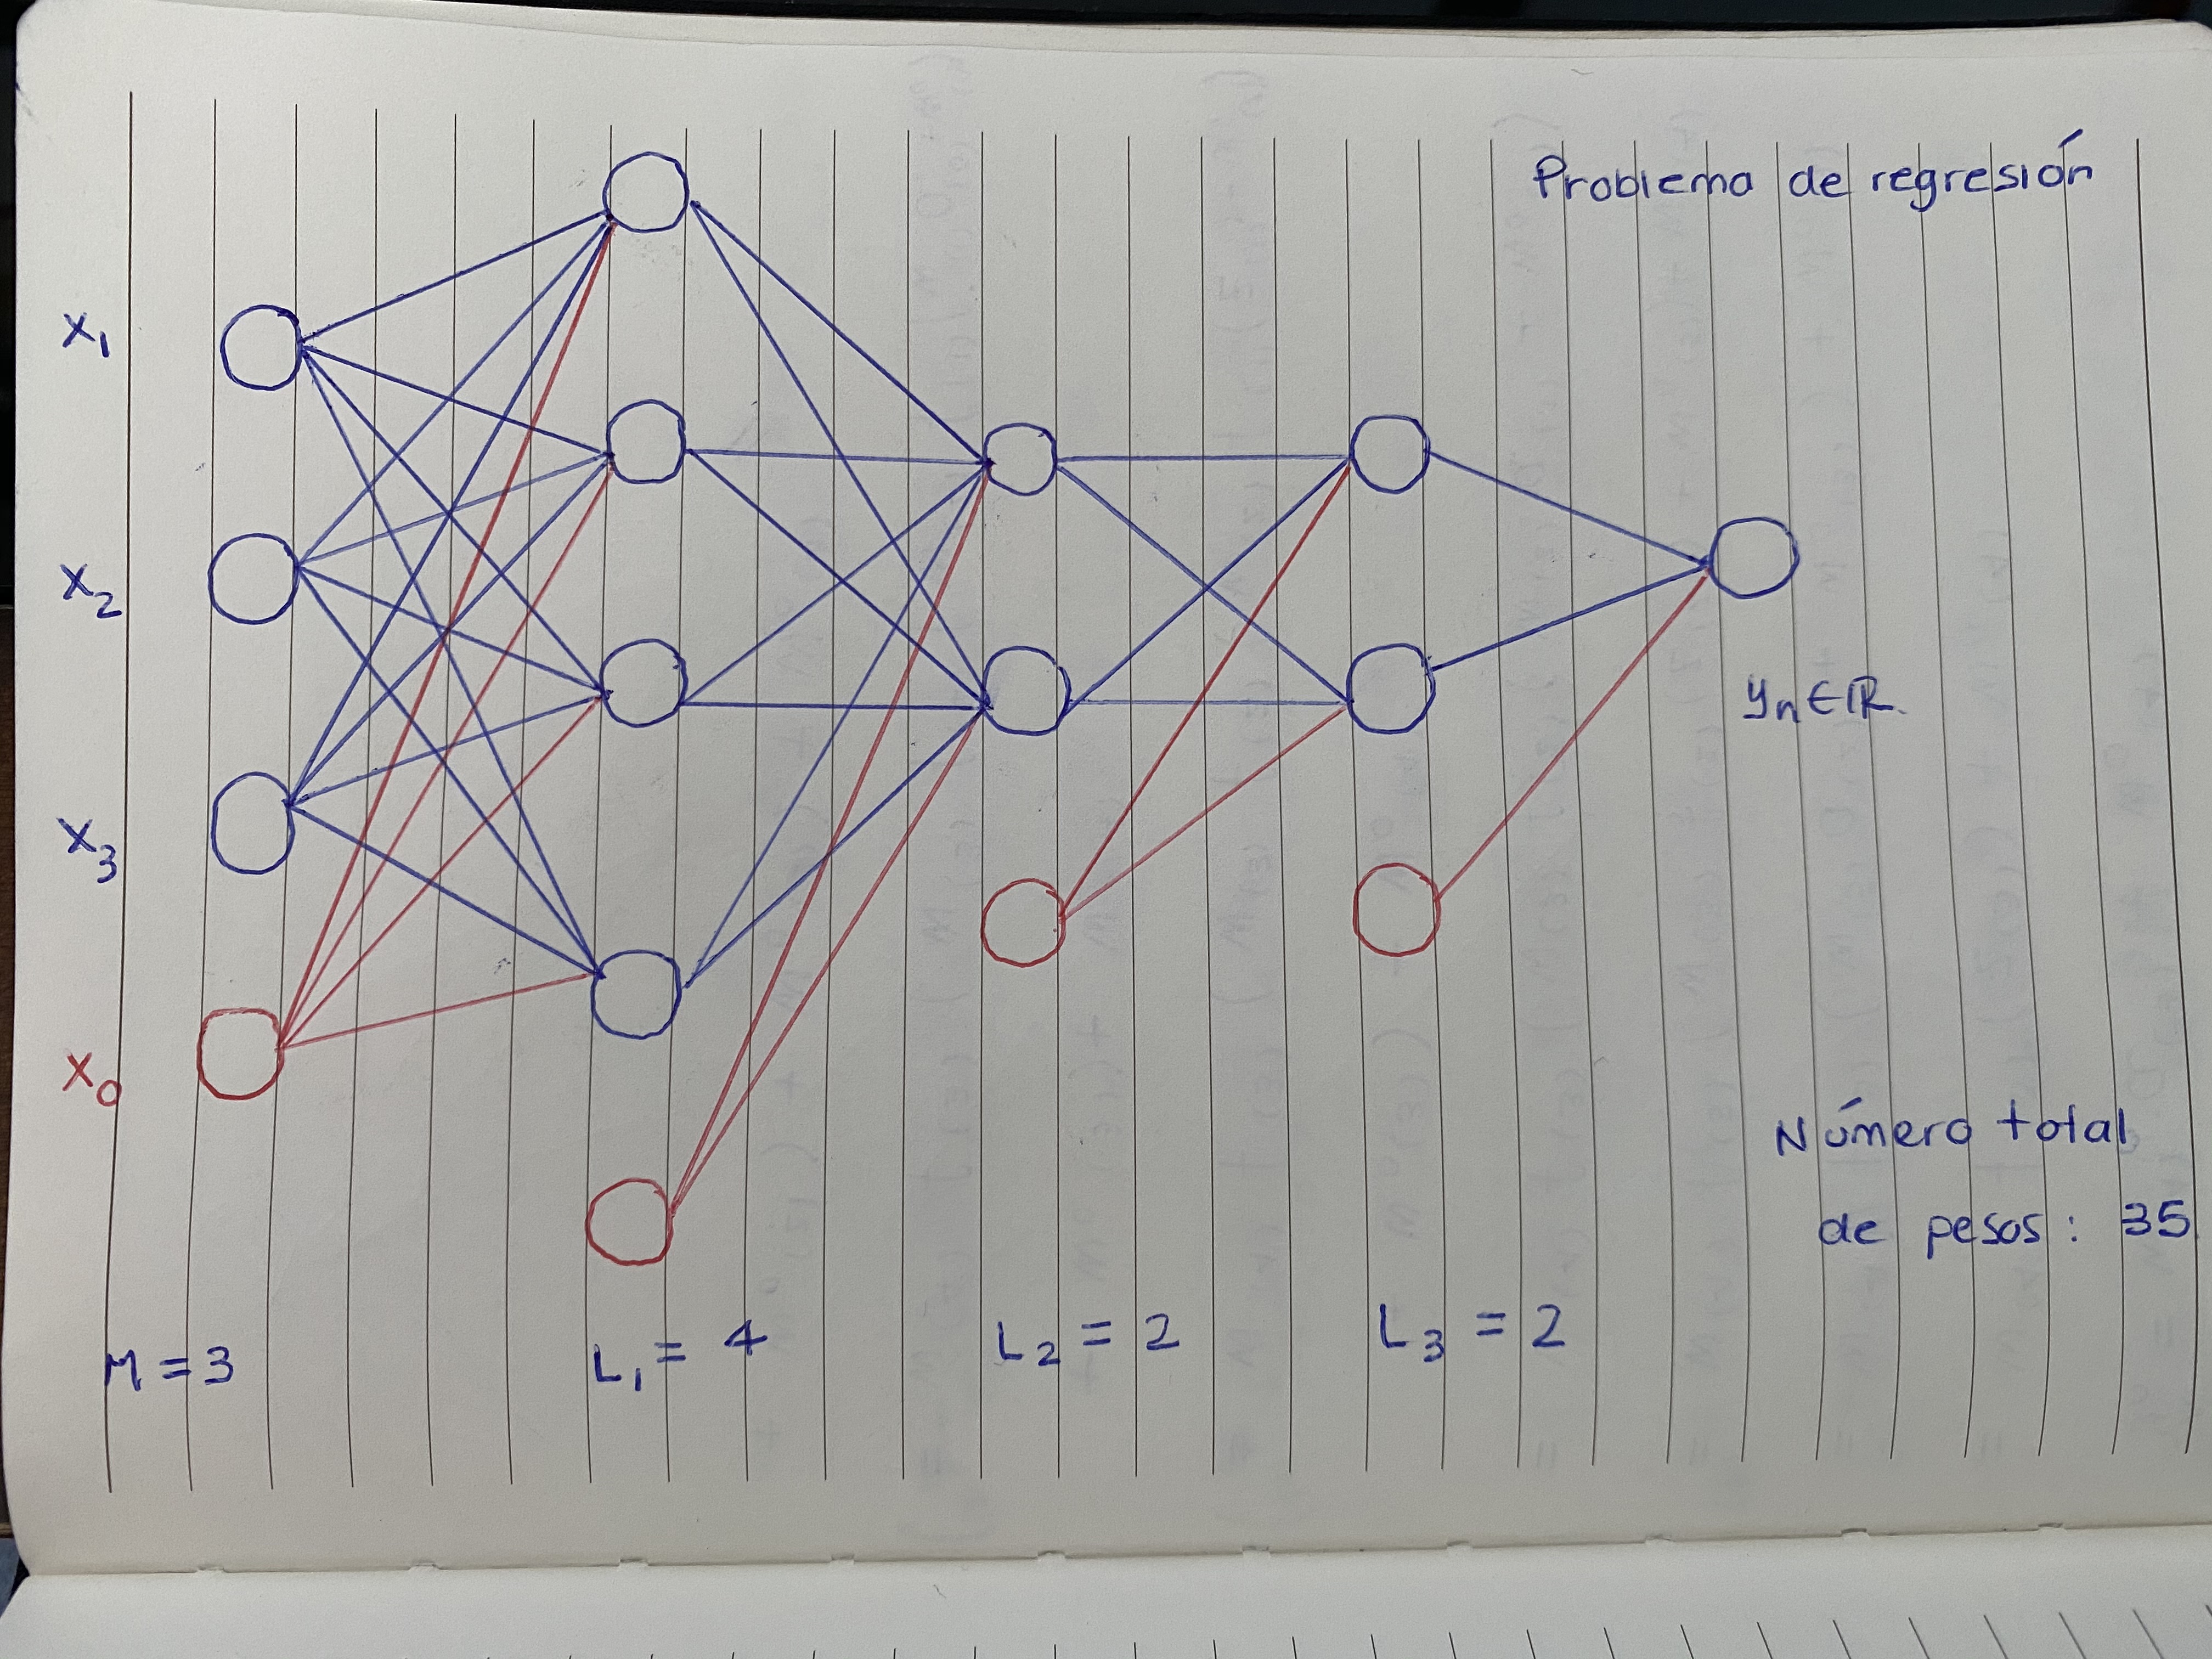 Problema de regresión
x₁
x₂
x₃
x₀
yₙ ∈ ℝ.
Número total
de pesos: 35
M = 3
L₁ = 4
L₂ = 2
L₃ = 2